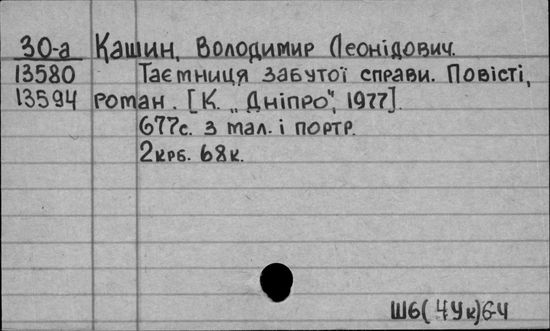 30-а Кашин, Володимир Леонідович.
13580 Таємниця забутої справи. Повісті,
13594 роман. [К. „Дніпро", 1977].
677с. з мал. і портр.
2крб. 68к.
Ш6(4Ук)6-4